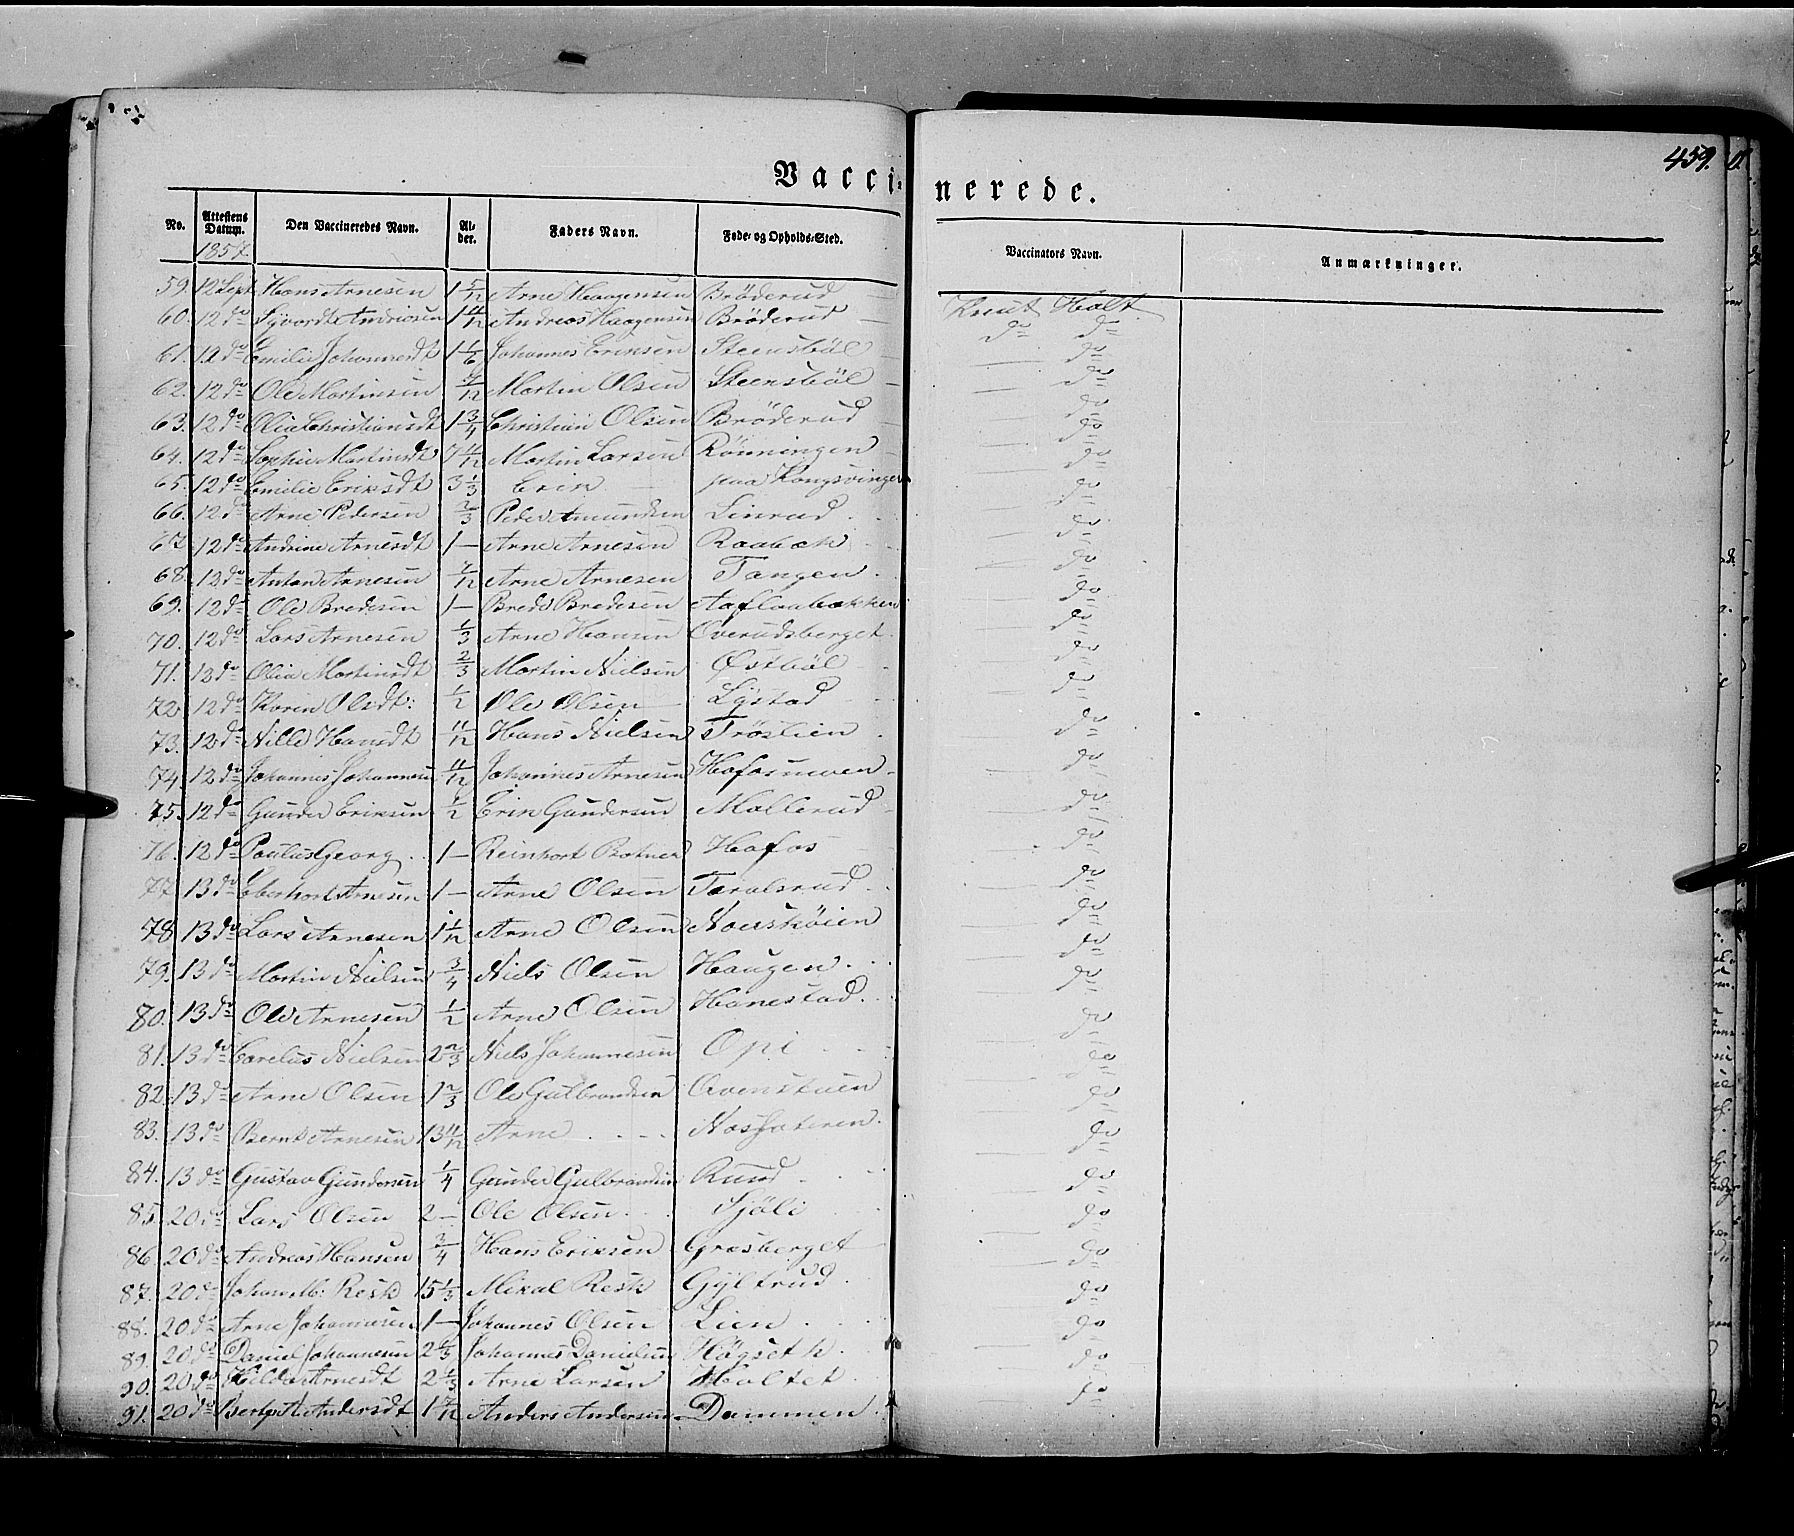 459.
Vaccinerede.
No. Attestens Datum. Den Vaccineredes Navn. Alder. Faders Navn. Føde- og Opholds-Sted. Vaccinators Navn. Anmærkninger.
1857.
59. 12 Sept Hans Arnesen 1 5/12 Arne Haagensen Bröderud Knut Holt
60. 12 do Syvordt Andreasen 1 4/12 Andreas Haagensen Bröderud do do
61. 12 do Emilie Johannesdt 1 1/6 Johannes Eriksen Steensböl do
62. 12 do Ole Martinsen 9/12 Martin Olsen Steensböl do
63. 12 do Olia Christiansdt 1 3/4 Christian Olsen Bröderud do
64. 12 do Sophie Martinsdt 7 11/12 Martin Larsen Rönningen do
65. 12 do Emilie Eriksdt 3 1/3 Erik paa Kongsvinger do
66. 12 do Arne Pedersen 2/3 Peder Amundsen Linrud do
67. 12 do Andrine Arnesdt 1 — Arne Arnesen Raabæk do
68. 12 do Anton Arnesen 7/12 Arne Arnesen Tangen do
69. 12 do Ole Bredesen 1 — Brede Bredesen Aaflaabakken do
70. 12 do Lars Arnesen 1/3 Arne Hansen Overudsberget do
71. 12 do Olia Martinsdt 2/3 Martin Nielsen Østböl do
72. 12 do Karen Olsdt: 1/2 Ole Olsen Lystad do
73. 12 do Nille Hansdt 11/12 Hans Nielsen Tröslien do
74. 12 do Johannes Johannesen 11/12 Johannes Arnesen Hofosmoen do
75. 12 do Gunder Eriksen 1/2 Erik Gundersen Mollerud do
76. 12 do Paulus Georg 1 — Reinhort Botner Hofos do
77. 13 do Eberhort Arnesen 1 — Arne Olsen Taralsrud do
78. 13 do Lars Arnesen 1 1/12 Arne Olsen do
79. 13 do Martin Nielsen 3/4 Niels Olsen Haugen do
80. 13 do Ole Arnesen 1/2 Arne Olsen Hanestad do
81. 13 do Carelius Nielsen 2 2/3 Niels Johannesen Opi do
82. 13 do Arne Olsen 1 2/3 Ole Gulbrandsen Ovenstuen do
83. 13 do Bernt Arnesen 13 11/12 Arne do
84. 13 do Gustav Gundersen 1/4 Gunder Gulbrandsen Ruud do
85. 20 do Lars Olsen 2 — Ole Olsen Sjöli do
86. 20 do Andreas Hansen 3/4 Hans Eriksen Gresberget do
87. 20 do Johan M: Resk 15 1/3 Mikal Resk Gyltrud do
88. 20 do Arne Johannesen 1 — Johannes Olsen Lien do
89. 20 do Daniel Johannesen 2 2/3 Johannes Danielsen Högseth do
90. 20 do Hilda Arnesdt 2 1/3 Arne Larsen Holtet do
91. 20 do Andersdt 1 7/12 Anders Andersen Dammen do